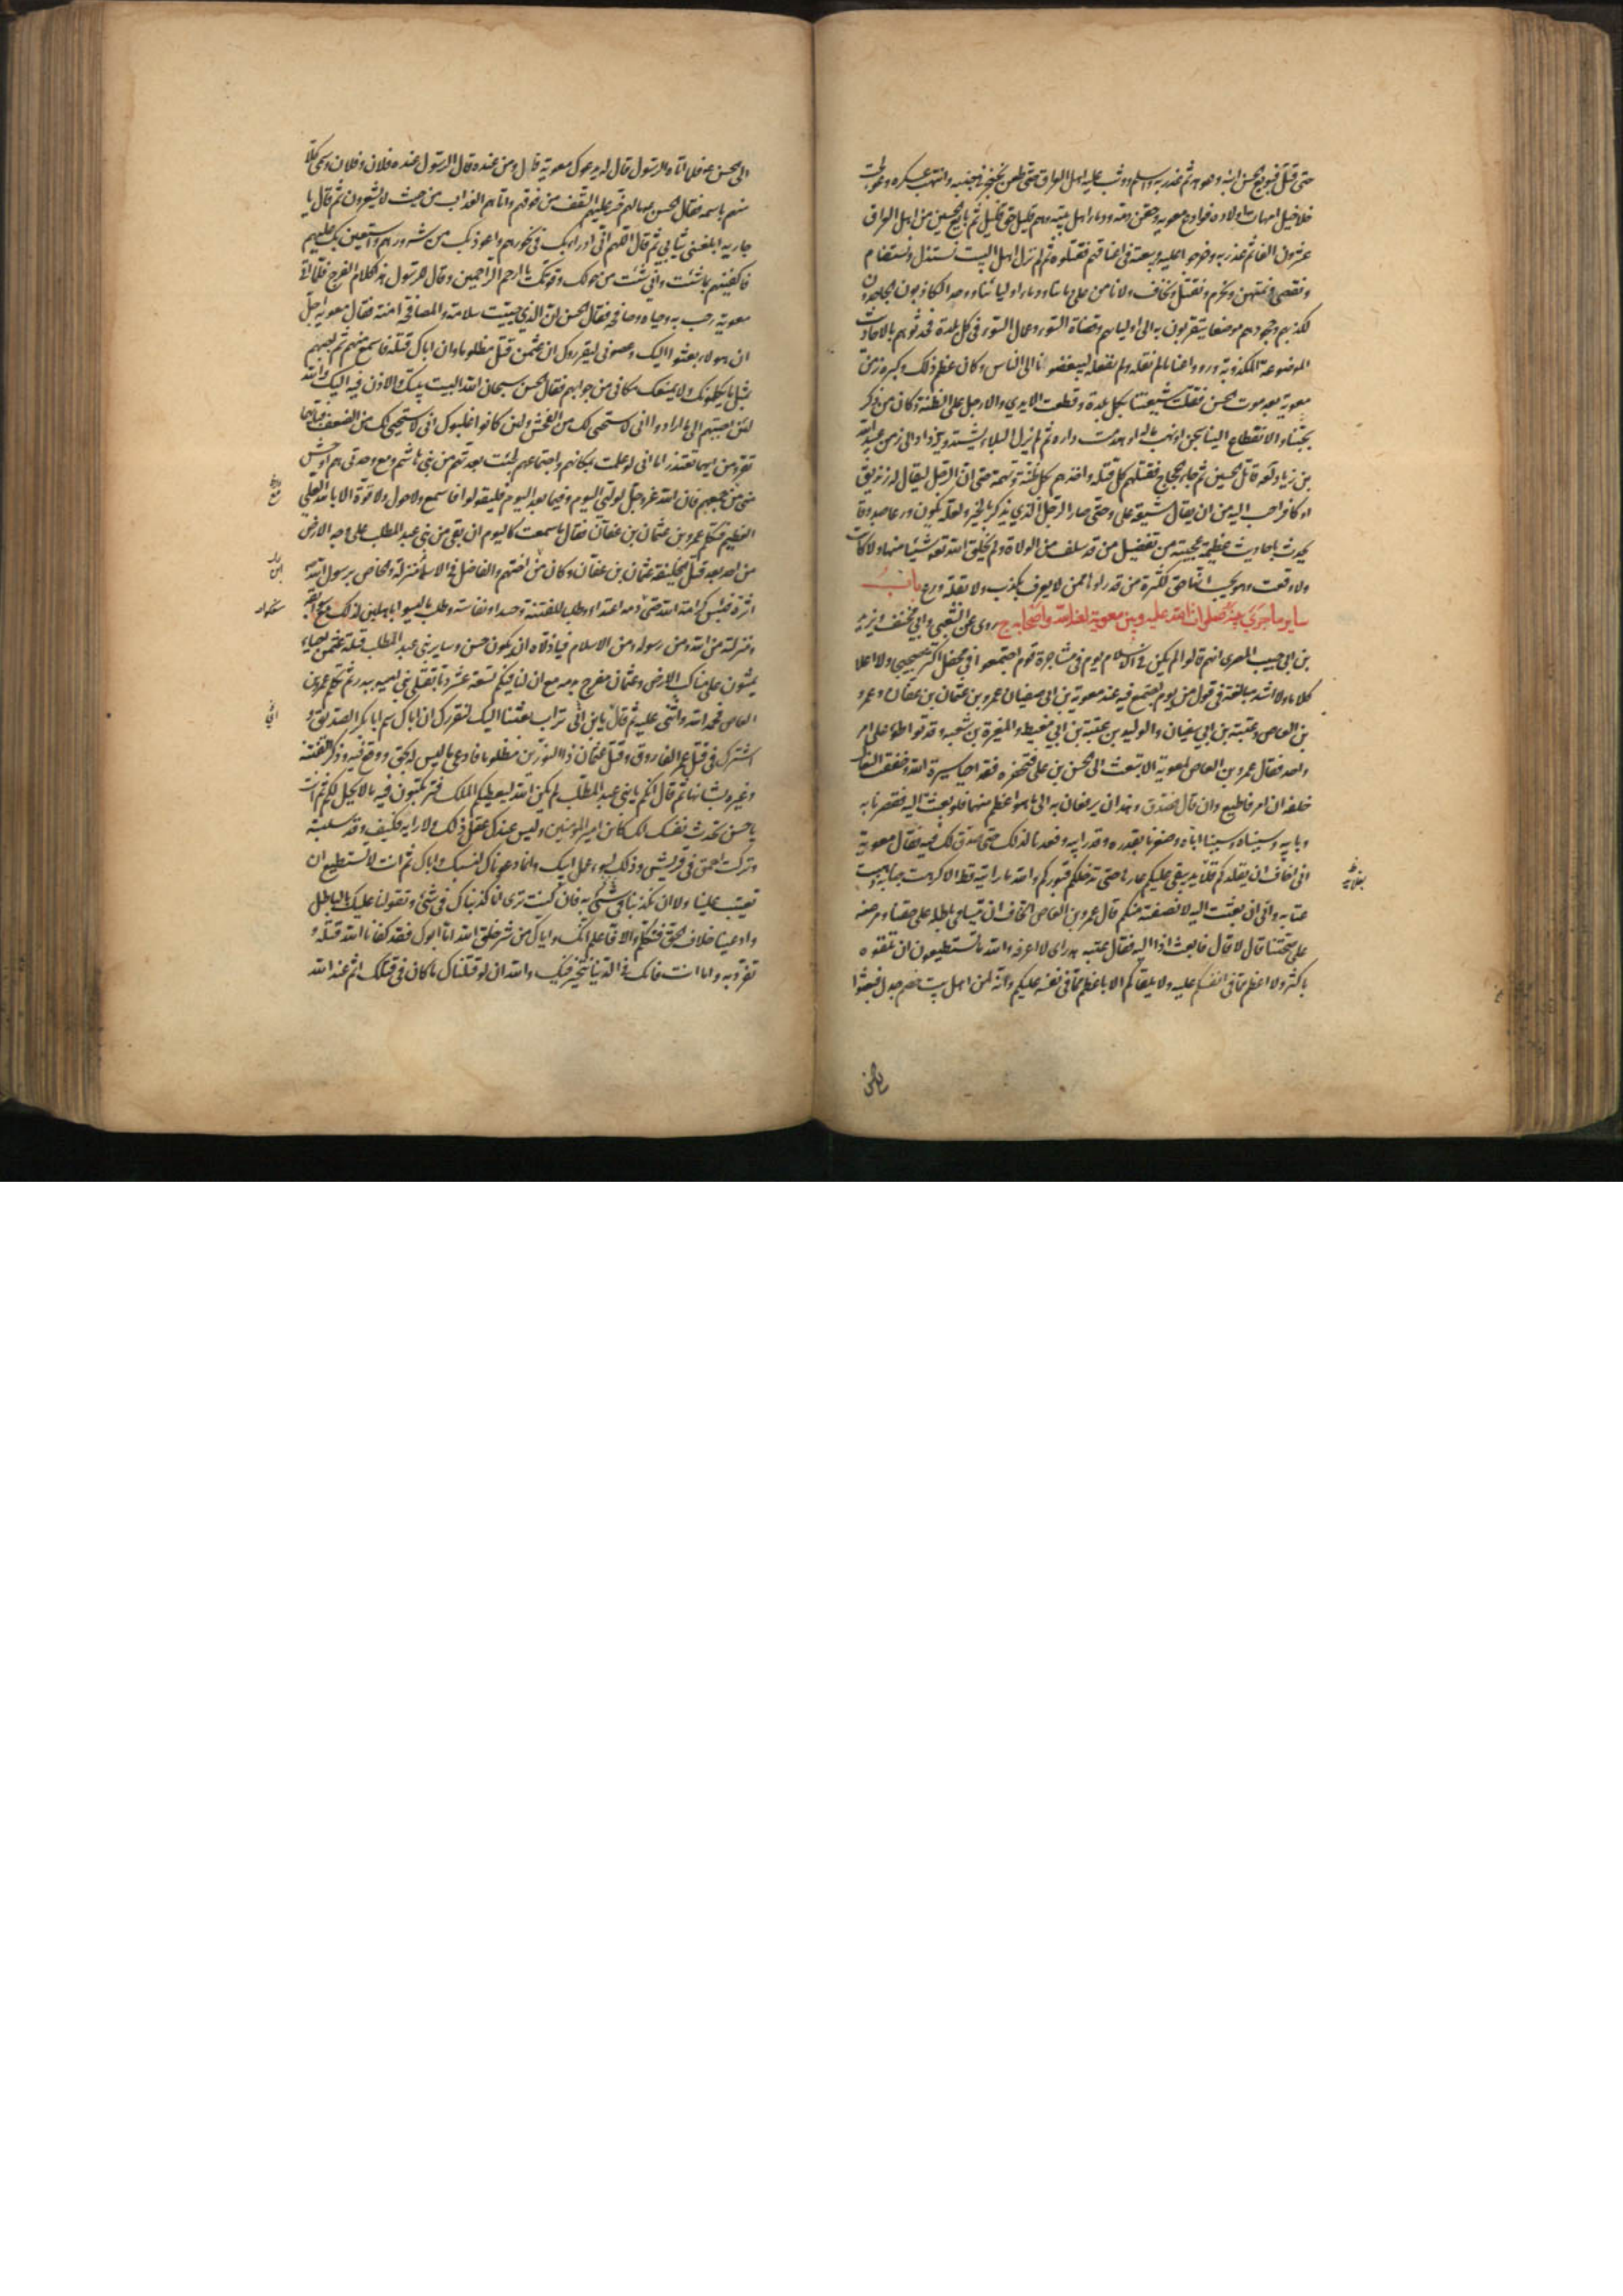 حتى قتل فبويع الحسن ابنه وعوهد ثم غدر به واسلم ووثب عليه اهل العراق حتى طعن بخنجر في جنبه وانتهب عسكره وعولجت
خلاخيل امهات اولاده فوادع معوية وحقن دمه ودماء اهل بيته وهم قليل حق قليل ثم بايع الحسين من اهل العراق
عشرون الفا ثم غدر به وخرجوا عليه وبيعته في اعناقهم فقتلوه ثم لم نزل اهل البيت نستذل ونستضام
ونقصى ونمتهن ونحرم ونقتل ونخاف ولا نامن على دمائنا ودماء اوليائنا ووجد الكاذبون الجاحدون
لكذبهم وجحودهم موضعا يتقربون به الى اوليائهم وقضاة السوء وعمال السوء في كل بلدة فحدثوهم بالاحاديث
الموضوعة المكذوبة ورووا عنا ما لم نقله ولم نفعله ليبغضونا الى الناس وكان عظم ذلك وكبره زمن
معوية بعد موت الحسن فقتلت شيعتنا بكل بلدة وقطعت الايدي والارجل على الظنة وكان من ذكر
بحبنا والانقطاع الينا سجن او نهب ماله او هدمت داره ثم لم يزل البلاء يشتد ويزداد الى زمن عبيد الله
بن زياد لعه قاتل الحسين ثم جاء الحجاج فقتلهم كل قتلة واخذهم كل ظنة وتهمة حتى ان الرجل ليقال له زنديق
او كافر احب اليه من ان يقال شيعة علي وحتى صار الرجل الذي يذكر بالخير ولعله يكون ورعا صدوقا
يحدث باحاديث عظيمة عجيبة من تفضيل من قد سلف من الولاة ولم يخلق الله تعه شيئا منها ولا كانت
ولا وقعت وهو يحسب انها حق لكثرة من قد رواها ممن لا يعرف بكذب ولا بقلة ورع باب
ساير ما جرى بينه صلوات الله عليه وبين معوية لعنه الله واصحابه ج روى عن الشعبي وابي مخنف ويزيد
بن ابي حبيب المصري انهم قالوا لم يكن في الاسلام يوم في مشاجرة قوم اجتمعوا في محفل اكثر ضجيجا ولا اعلا
كلاما ولا اشد مبالغة في قول من يوم اجتمع فيه عند معوية بن ابي سفيان عمرو بن عثمان بن عفان وعمرو
بن العاص وعتبة بن ابي سفيان والوليد بن عقبة بن ابي معيط والمغيرة بن شعبه وقد تواطؤا على امر
واحد فقال عمرو بن العاص لمعوية الا تبعث الى الحسن بن علي فتحضره فقد احيا سيرة ابيه وخفقت النعال
خلفه ان امر فاطيع وان قال فصدق وهذان يرفعان به الى ما هو اعظم منهما فلو بعثت اليه فقصرنا به
وبابيه وسببناه وسببنا اباه وصغرنا بقدره وقدر ابيه وقعدنا لذلك حتى صدق لك فيه فقال معوية
اني اخاف ان يقلدكم قلائد يبقى عليكم عارها حتى تدخلكم قبوركم والله ما رايته قط الا كرهت جنابه وهبت
عتابه واني ان بعثت اليه لانصفنه منكم قال عمرو بن العاص اتخاف ان يتسامى باطله على حقنا ومرضه
على صحتنا قال لا قال فابعث اذا اليه فقال عتبه هذا راي لا اعرفه والله ما تستطيعون ان تلقوه
باكثر ولا اعظم مما في انفسكم عليه ولا يلقاكم الا باعظم مما في نفسه عليكم وانه لمن اهل بيت خصم جدل فبعثوا
الى الحسن ع فلما اتاه الرسول قال له يدعوك معوية قال ومن عنده قال الرسول عنده فلان وفلان وسمى كلا
منهم باسمه فقال الحسن ما لهم خر عليهم السقف من فوقهم واتاهم العذاب من حيث لا يشعرون ثم قال يا
جارية ابلغني ثيابي ثم قال اللهم اني ادرأ بك في نحورهم واعوذ بك من شرورهم واستعين بك عليهم
فاكفنيهم بما شئت واني شئت من حولك وقوتك يا ارحم الراحمين وقال للرسول هذا كلام الفرج فلما اتى
معوية رحب به وحياه وصافحه فقال الحسن ان الذي حييت سلامة والمصافحة امنة فقال معوية اجل
ان هولاء بعثوا اليك وعصوني ليقرروك ان عثمن قتل مظلوما وان اباك قتله فاسمع منهم ثم اجبهم
بمثل ما يكلمونك ولا يمنعك مكاني من جوابهم فقال الحسن سبحان الله البيت بيتك والاذن فيه اليك والله
لئن اجبتهم الى ما ارادوا اني لاستحيي لك من الفحش ولئن كانوا غلبوك اني لاستحيي لك من الضعف فبايهما
تقر ومن ايهما تعتذر اما اني لو علمت بمكانهم واجتماعهم لجئت بعدتهم من بني هاشم ومع وحدتي هم اوحش
مني من جمعهم فان الله عز وجل لوليي اليوم وفيما بعد اليوم فليقولوا فاسمع ولا حول ولا قوة الا بالله العلي
العظيم فتكلم عمرو بن عثمان بن عفان فقال ما سمعت كاليوم ان بقي من بني عبد المطلب على وجه الارض
من احد بعد قتل الخليفة عثمان بن عفان وكان من اختهم والفاضل في الاسلام منزلة والخاص برسول الله
اثرة فبئس كرامة الله حتى سفكوا دمه اعتداء وطلبا للفتنة وحسدا ونفاسة وطلب ما ليسوا باهلين لذلك مع سوابقه
ومنزلته من الله ومن رسوله ومن الاسلام فيا ذلاه ان يكون حسن وساير بني عبد المطلب قتلة عثمن احياء
يمشون على مناكب الارض وعثمان مضرج بدمه مع ان لنا فيكم تسعة عشر دما بقتلى بني اميه ببدر ثم تكلم عمرو بن
العاص فحمد الله واثنى عليه ثم قال يا بن ابي تراب بعثنا اليك لنقررك ان اباك سم ابا بكر الصديق و
اشترك في قتل عمر الفاروق وقتل عثمان ذا النورين مظلوما فادعى ما ليس له بحق ووقع فيه وذكر الفتنة
وعيره بشانها ثم قال انكم يا بني عبد المطلب لم يكن الله ليعطيكم الملك فترتكبون فيه ما لا يحل لكم ثم انت
يا حسن تحدث نفسك انك كائن امير المؤمنين وليس عندك عقل ذلك ولا رايه فكيف وقد سلبته
وتركت احمق في قريش وذلك لسوء عمل ابيك وانما دعوناك لنسبك واباك ثم انت لا تستطيع ان
تعيب علينا ولا ان تكذبنا في شيء به فان كنت ترى انا كذبناك في شيء وتقولنا عليك بالباطل
وادعينا خلاف الحق فتكلم والا فاعلم انك واباك من شر خلق الله اما ابوك فقد كفانا الله قتله و
تفرد به واما انت فانك في ايدينا نتخير فيك والله ان لو قتلناك ما كان في قتلك اثم عند الله